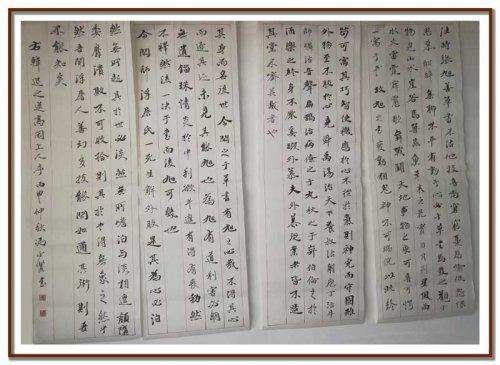 苟可寓其巧智使機應於心不挫於氣則神完而守固雖
外物至不膠於心堯舜禹湯治天下養叔治射庖丁治牛
師曠治音聲扁鵲治病僚之于丸秋之于弈伯倫之于酒
樂之終身不厭奚暇外慕夫外慕徙業者皆不造
其堂不嚌其胾者也
往時張旭善草書不治他技喜怒窘窮憂悲愉佚怨恨
思慕酣醉無聊不平有動于心必于草書焉發之觀于
物見山水崖谷鳥獸蟲魚草木之花實日月列星風雨
水火雷霆霹靂歌舞戰鬬天地事物之變可喜可愕
一寓于書故旭之書變動猶鬼神不可端倪以此終
其身而名後世今閑之于草書有旭之心哉不得其心
而逐其迹未見其能旭也為旭有道利害必明
無遺錙銖情炎于中利欲鬬進有得有喪勃然
不釋然後一決于書而後旭可幾也
今閑師浮屠氏一死生解外膠是其為心必泊
然無所起其於世必淡然無所嗜泊与淡相遭頹墮
委靡潰敗不可收拾則其於書得無象之然乎
然吾聞浮屠人善幻多技能閑如通其術則吾
不能知矣
右韓退之送高閑上人序丙申仲秋馮小書